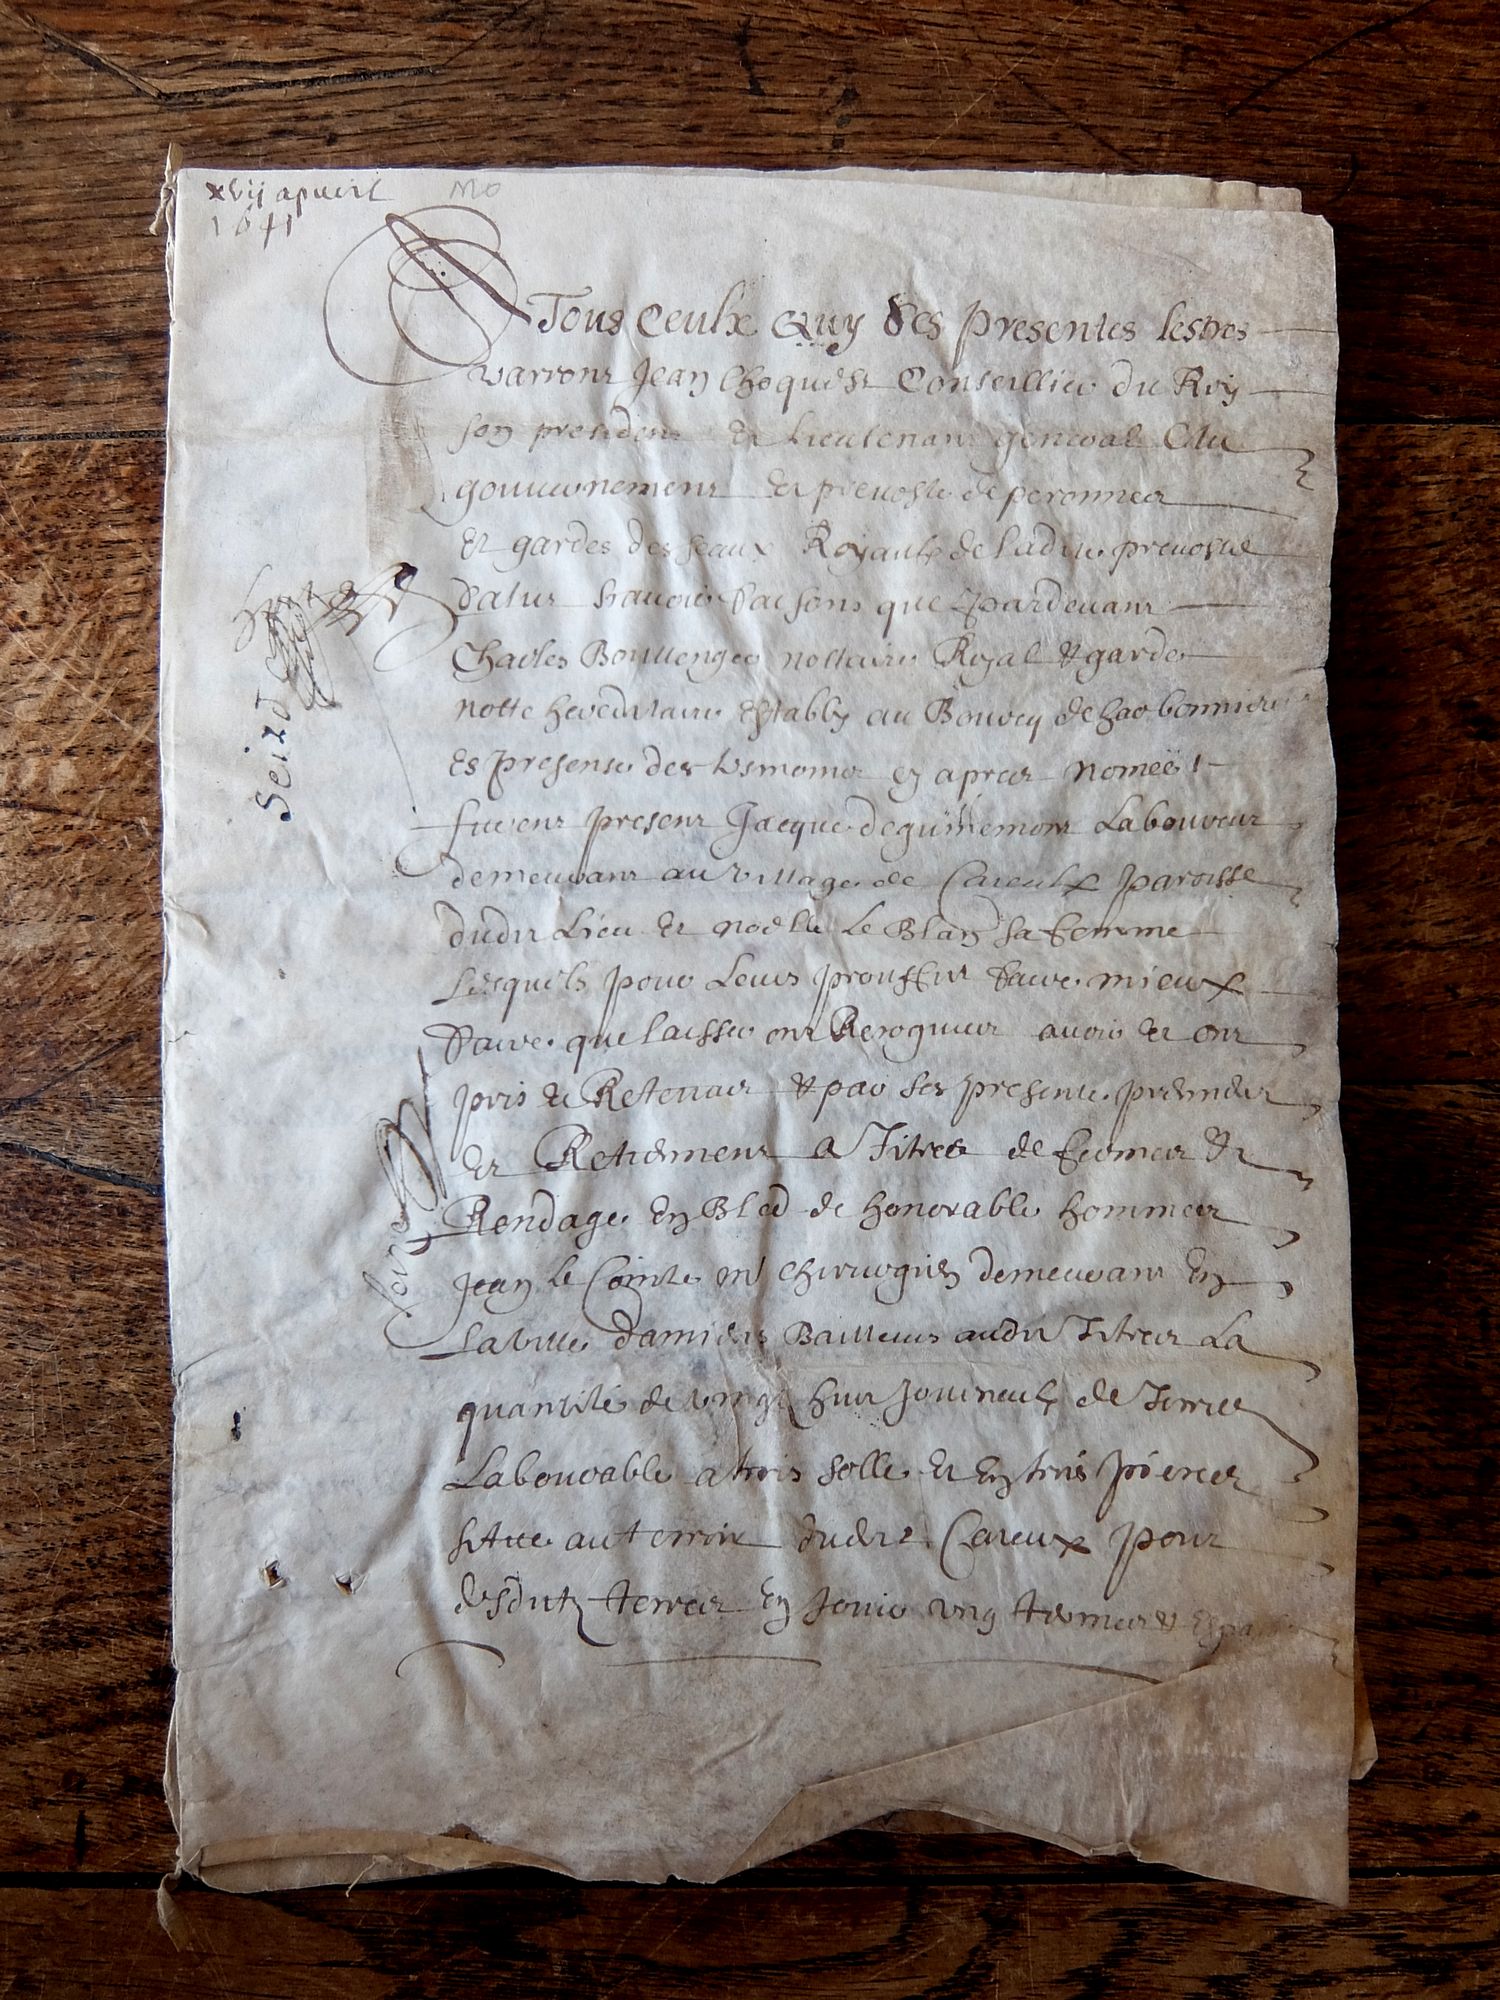 xvij apvril
1641
A Tous Ceulx Quy Ses presentes lestres
varront Jean Choquest Conseillier du Roy
son president et Lieutenant general Au
gouvernement et prevosté de peronne
et gardes des seaux Royaulx de ladite prevosté
salut scavoir faisons que pardevant
Charles Boullenger nottaire Royal et garde
notte hereditaire establÿ au Bourcq de harbonnier
es presense des tesmoins en apres nomeés
furent present Jacque deguillemont Laboureur
demeurant au village de Caieulx paroisse
dudit Lieu et noelle Le Blan sa femme
Lesquels pour Leurs prouffit faire mieux
faire que laisser ont Recognut avoir et ont
pris et Retenut et par ses presente prendent
et Retiennent a Titres de fermes et
Rendage en Bled de honorable homme
Jean Le Comte mr chirurgien demeurant en
La ville damiens Bailleurs audit Titres La
quantité de vingt huit Journeulx de Terre
Labourable a trois solle et en trois pieces
situe au terroir dudit Caieux pour
desdites terres en Jouir